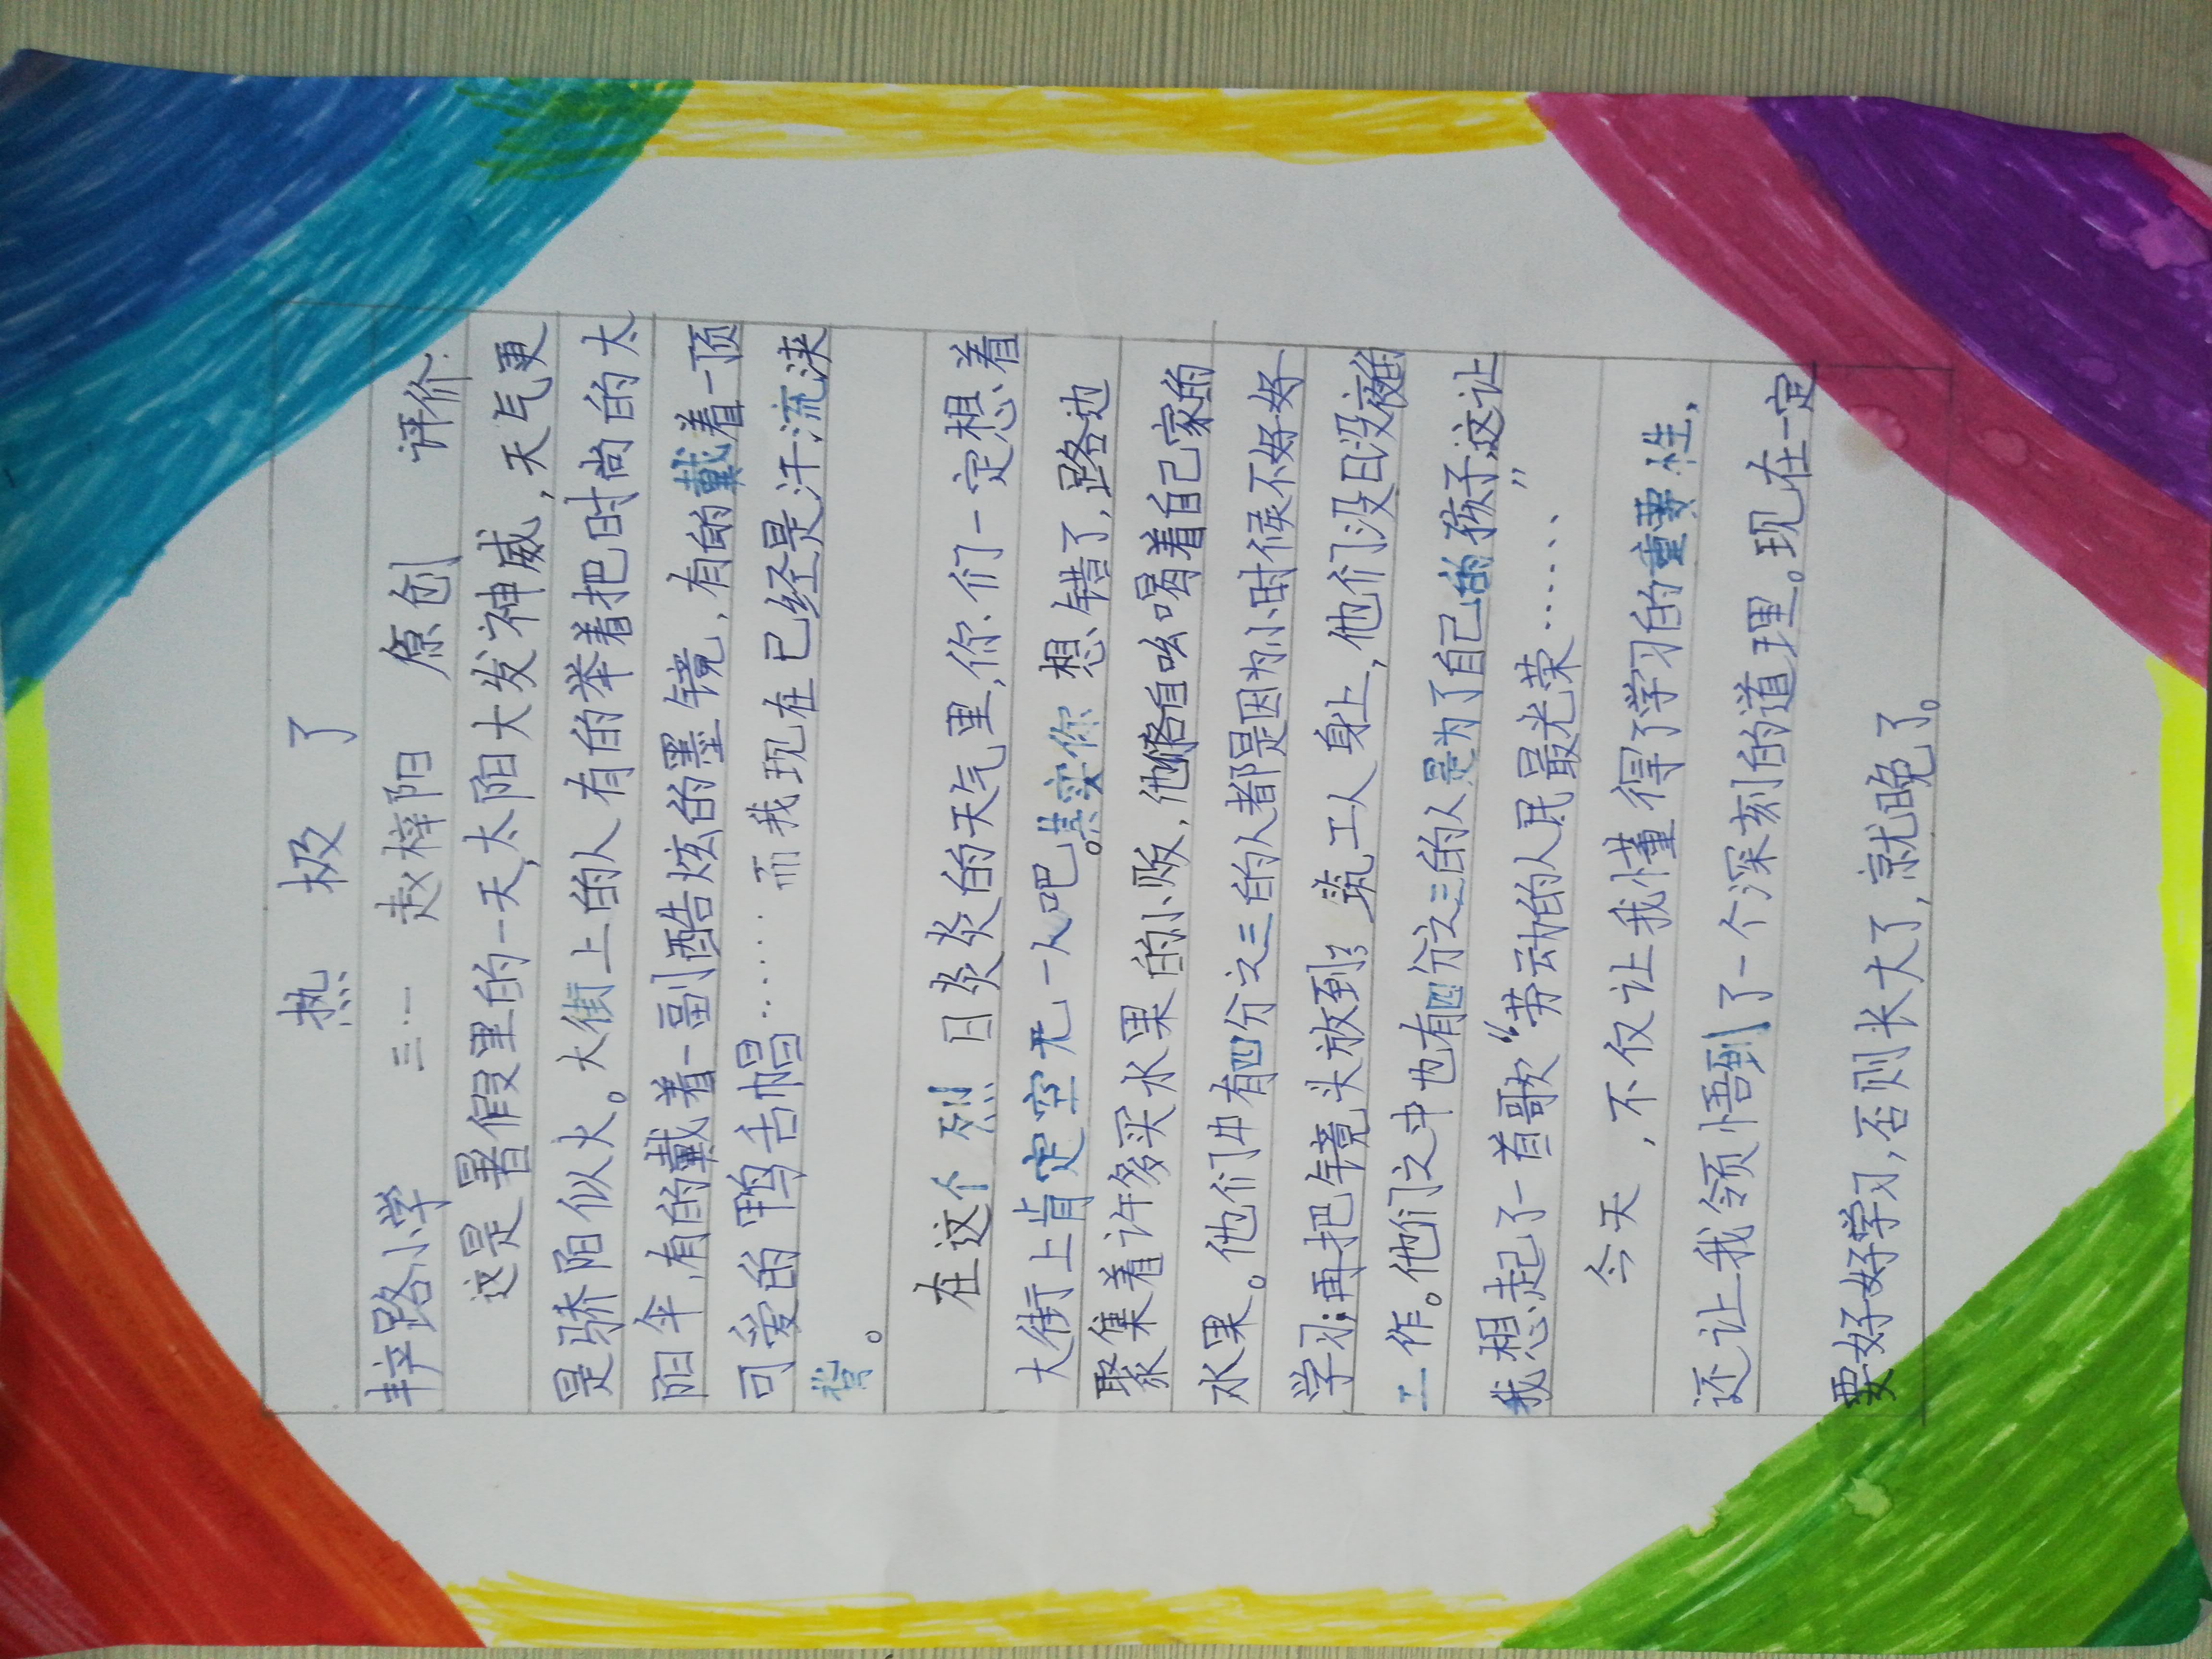 热极了
铧路小学 三.一 赵梓阳 原创 评价:
这是暑假里的一天,太阳大发神威,天气更
是骄阳似火。大街上的人有的举着把时尚的太
阳伞,有的戴着一副酷炫的墨镜,有的戴着一顶
可爱的鸭舌帽……而我现在已经是汗流浃
背。
在这个烈日炎炎的天气里,你们一定想着
大街上肯定空无一人吧。其实你想错了,路边
聚集着许多买水果的小贩,他们各自吆喝着自己家的
水果。他们中有四分之三的人都是因为小时候不好好
学习;再把镜头放到建筑工人身上,他们没日没夜的
工作。他们之中也有四分之三的人是为了自己的孩子,这让
我想起了一首歌“劳动的人民最光荣……”
今天,不仅让我懂得了学习的重要性,
还让我领悟到了一个深刻的道理。现在一定
要好好学习,否则长大了,就晚了。